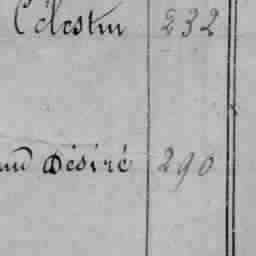 Célestin 232
Désiré 290